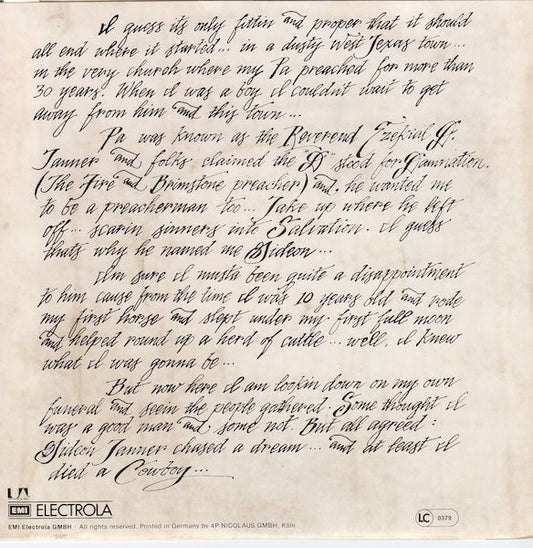 I guess its only fittin and proper that it should
all end where it started... in a dusty West Texas town...
in the very church where my Pa preached for more than
30 years. When I was a boy I couldn't wait to get
away from him and this town...
Pa was known as the Reverend Ezekial D.
Tanner and folks claimed the "D" stood for Damnation.
(The Fire and Brimstone preacher) and he wanted me
to be a preacherman too... Take up where he left
off... scarin sinners into Salvation. I guess
thats why he named me Gideon...
I'm sure I musta been quite a disappointment
to him cause from the time I was 10 years old and rode
my first horse and slept under my first full moon
and helped round up a herd of cattle... well, I knew
what I was gonna be...
But now here I am lookin down on my own
funeral and seein the people gathered. Some thought I
was a good man and some not. But all agreed:
Gideon Tanner chased a dream... and at least I
died a Cowboy...
UA
EMI ELECTROLA
EMI Electrola GMBH · All rights reserved. Printed in Germany by 4P NICOLAUS GMBH, Köln
LC 0379